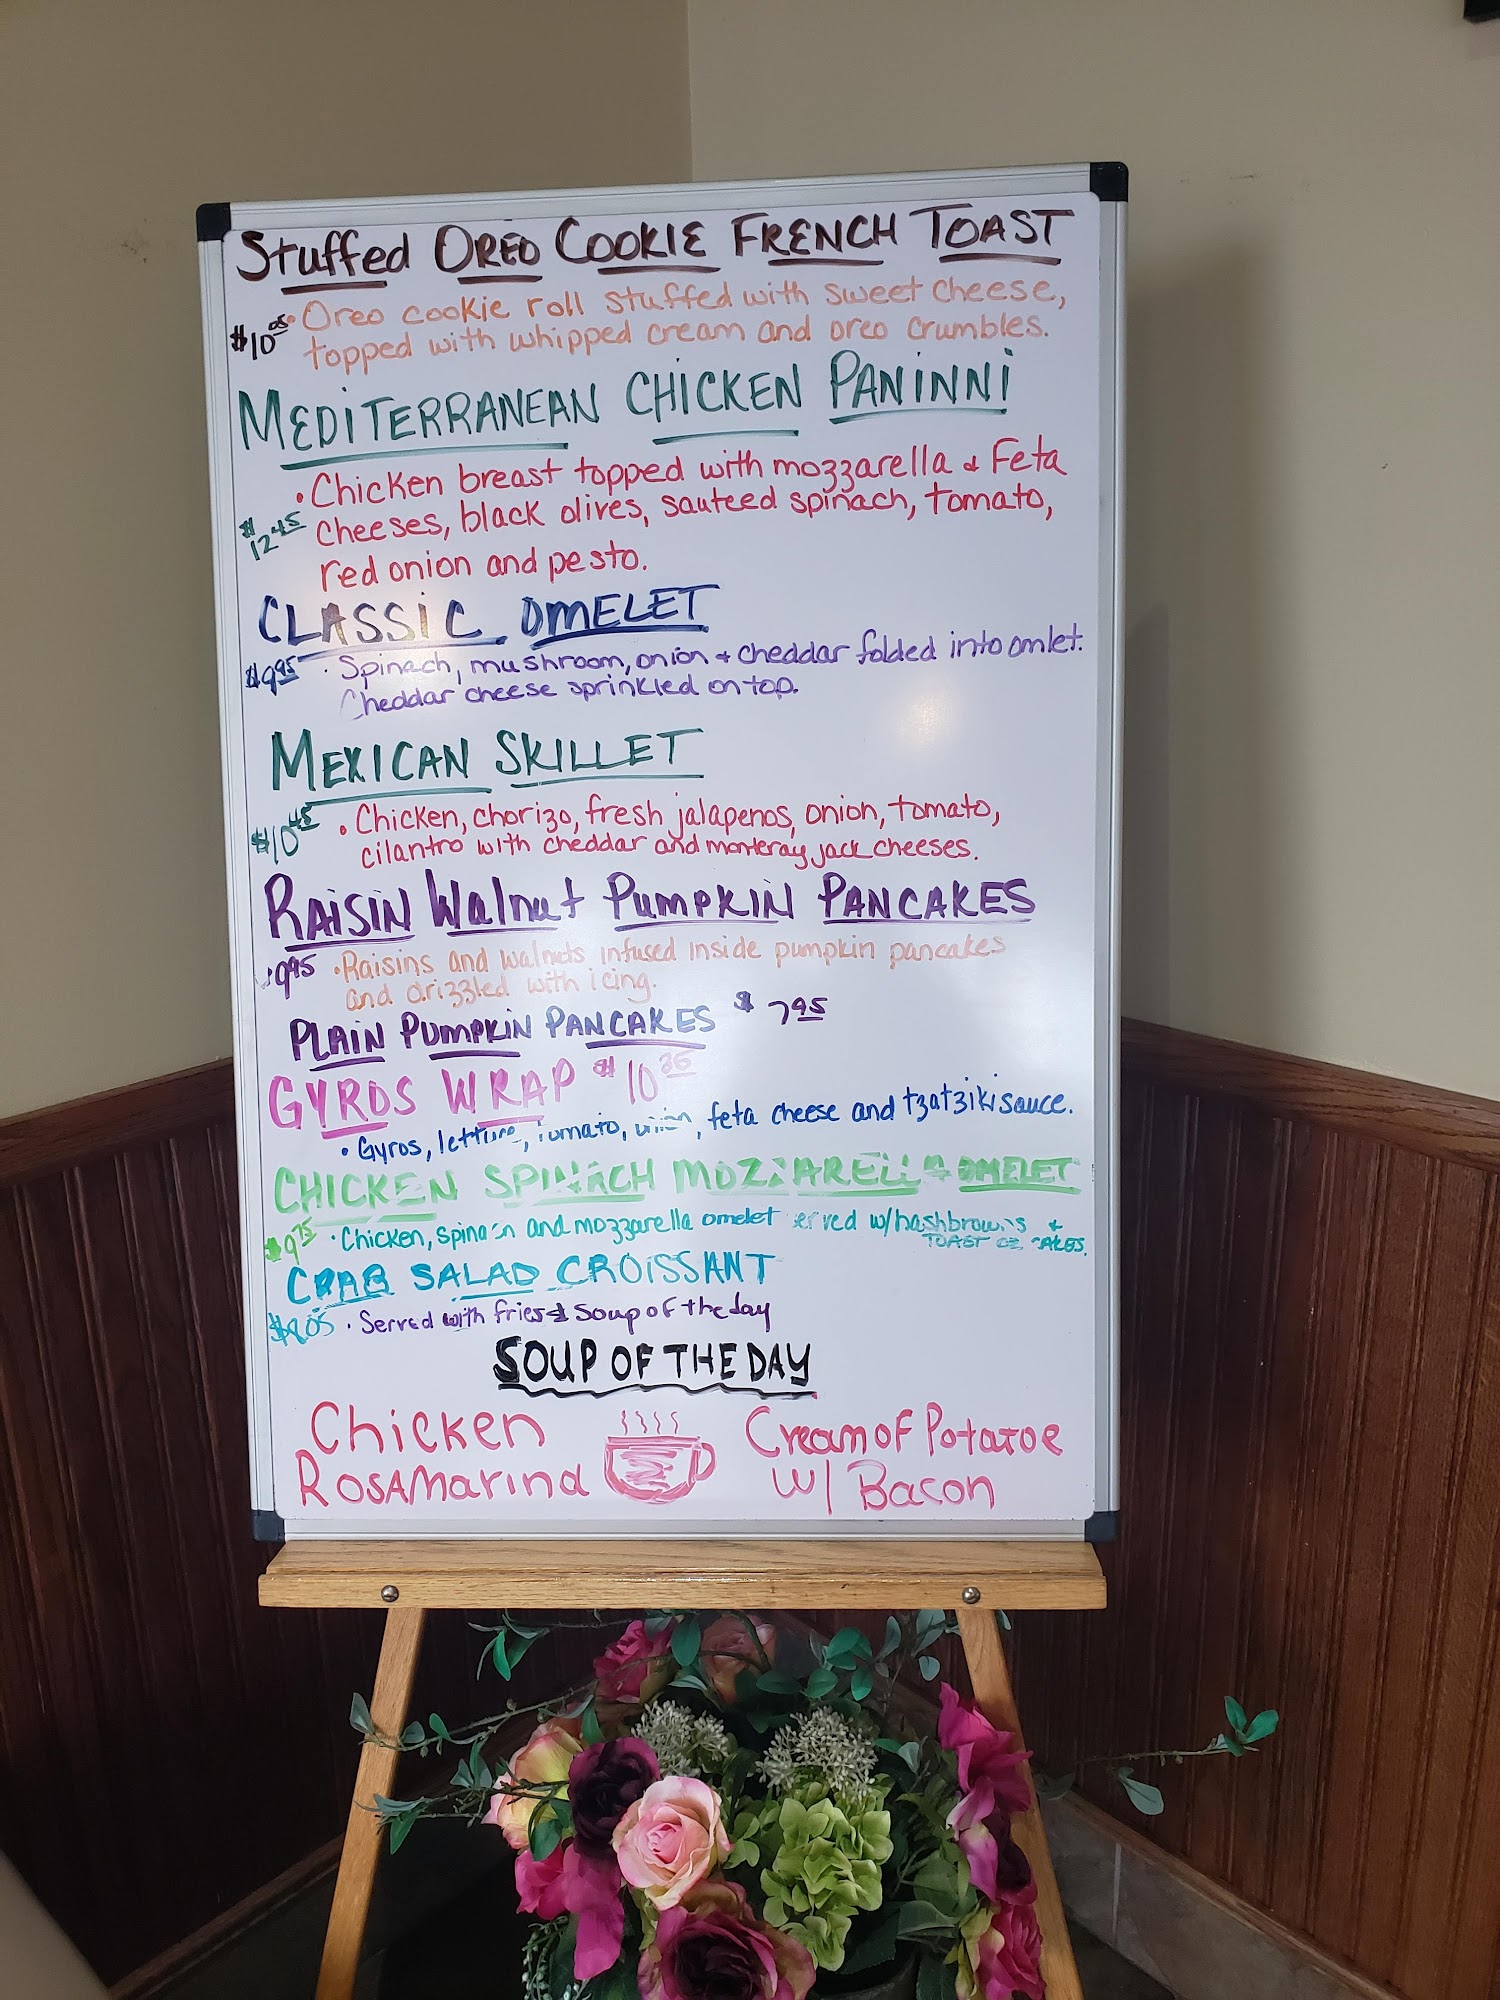 Stuffed OREO COOKIE FRENCH TOAST
$10.05 • Oreo cookie roll stuffed with sweet cheese,
topped with whipped cream and oreo crumbles.
MEDITERRANEAN CHICKEN PANINNI
• Chicken breast topped with mozzarella & Feta
$12.45 cheeses, black olives, sauteed spinach, tomato,
red onion and pesto.
CLASSIC OMELET
$9.95 • Spinach, mushroom, onion + cheddar folded into omlet.
Cheddar cheese sprinkled on top.
MEXICAN SKILLET
$10.45 • Chicken, chorizo, fresh jalapenos, onion, tomato,
cilantro with cheddar and monteray jack cheeses.
RAISIN Walnut PUMPKIN PANCAKES
9.95 • Raisins and walnuts infused inside pumpkin pancakes
and drizzled with icing.
PLAIN PUMPKIN PANCAKES $7.95
GYROS WRAP $10
• Gyros, lettuce, tomato, onion, feta cheese and tzatziki sauce.
CHICKEN SPINACH MOZZARELLA OMELET
$9.75 • Chicken, spinach and mozzarella omelet served w/hashbrowns &
TOAST OR CAKES.
CRAB SALAD CROISSANT
• Served with fries & Soup of the day
SOUP OF THE DAY
Chicken Cream of Potatoe
Rosamarina w/ Bacon